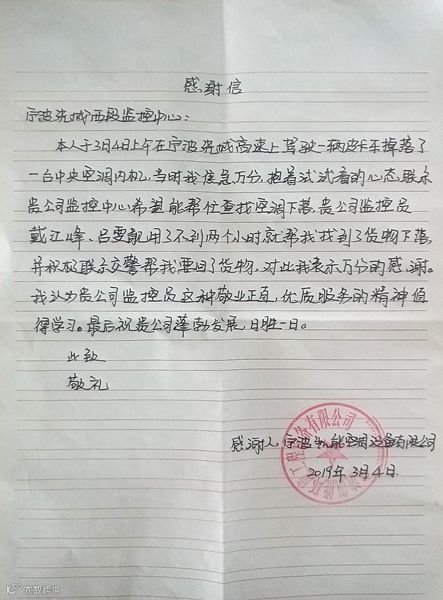 感谢信
宁波绕城西段监控中心:
本人于3月4日上午在宁波绕城高速上驾驶一辆皮卡车掉落了
一台中央空调内机,当时我焦急万分,抱着试试看的心态联系
贵公司监控中心希望能帮忙查找空调下落,贵公司监控员
戴江峰、吕雯靓用了不到两个小时就帮我找到了货物下落,
并积极联系交警帮我要回了货物,对此我表示万分的感谢。
我认为贵公司监控员这种敬业正直,优质服务的精神值
得学习。最后祝贵公司蓬勃发展,日胜一日。
此致
敬礼
感谢人:宁波 能空调设备有限公司
2019年3月4日
备有限公司
大数跨境